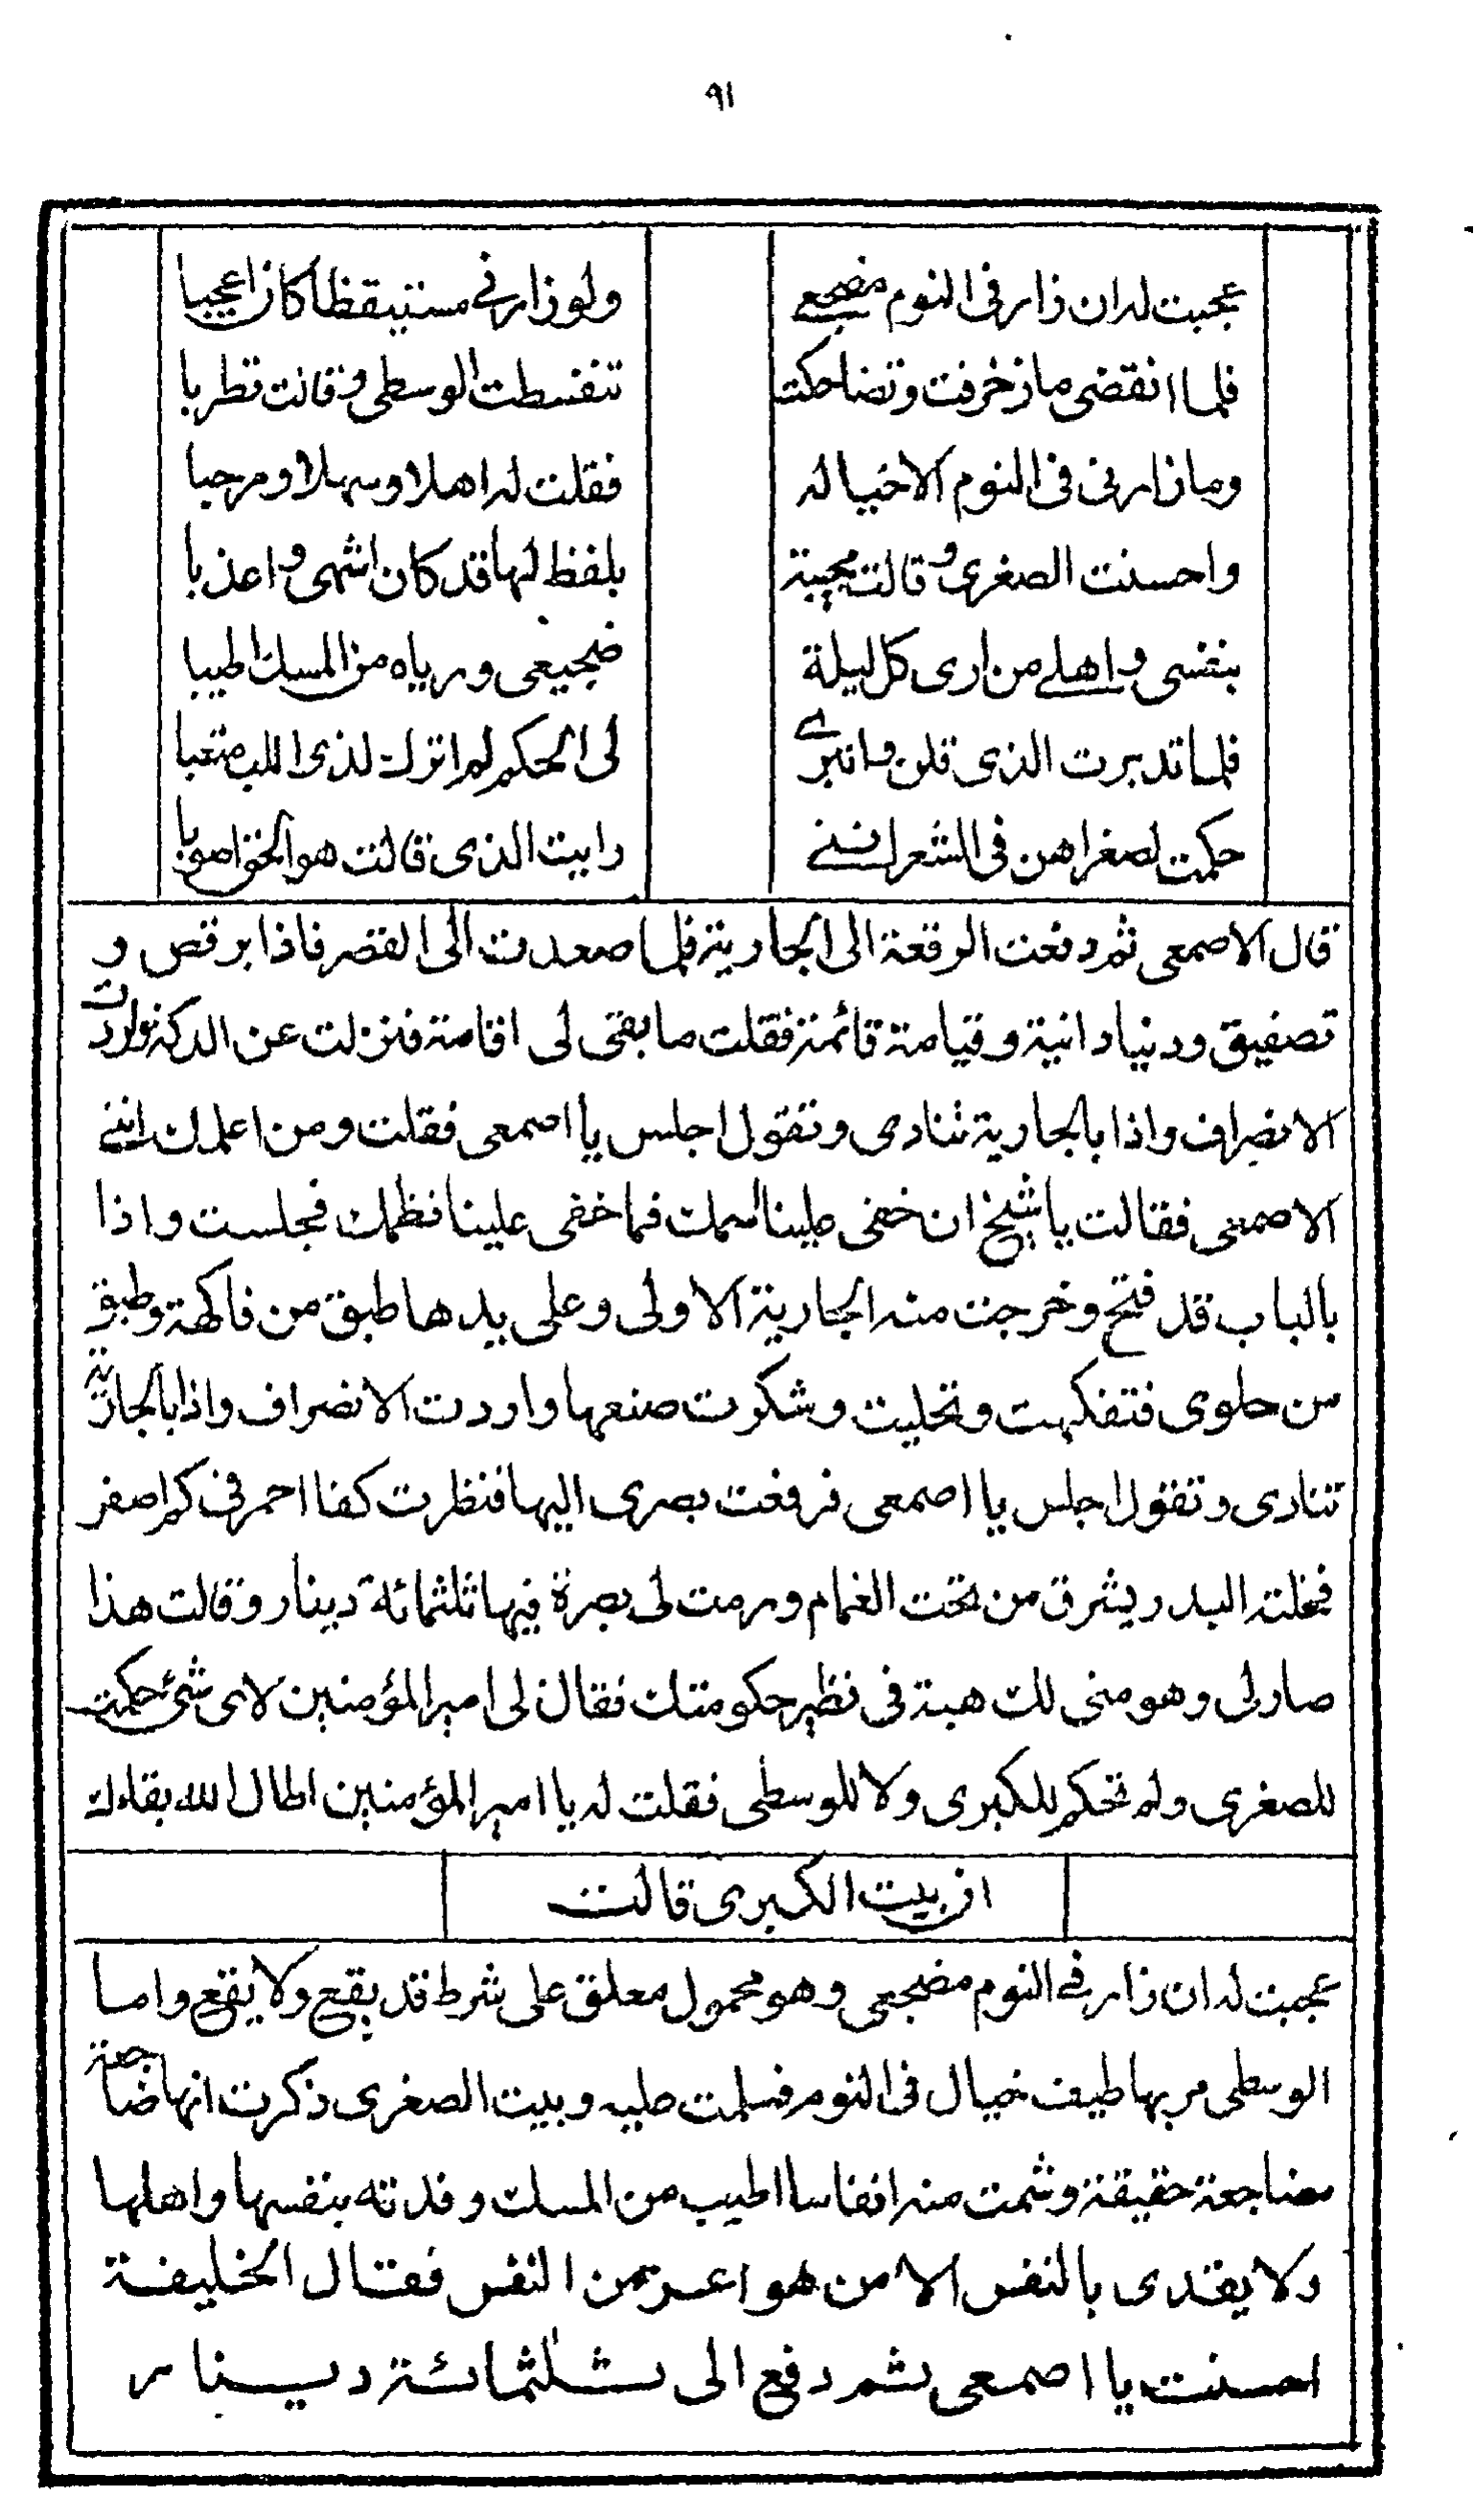 ٩١
عجبت له ان زار فى النوم مضجعي ولو زارني مستيقظا كان اعجبا
فلما انقضى ما زخرفت وتضاحكت تنفست الوسطى وقالت تطربا
وما زارنى فى النوم الا خياله فقلت له اهلا وسهلا ومرحبا
واحسنت الصغرى وقالت مجيبة بلفظ لها قد كان اشهى واعذبا
بنفسى واهلي من ارى كل ليلة ضجيعى ورياه من المسك اطيبا
فلما تدبرت الذى قلن وانبرى لى الحكم لم اترك لذى اللب متعبا
حكمت لصغراهن فى الشعر انني رايت الذى قالت هو الحق اصوبا
قال الاصمعى ثم دفعت الرقعة الى الجارية فلما صعدت الى القصر فاذا برقص و
تصفيق ودنيا دانية وقيامة قائمة فقلت ما بقى لى اقامة فنزلت عن الدكة واردت
الانصراف واذا بالجارية تنادى وتقول اجلس يا اصمعى فقلت ومن اعلمك انني
الاصمعى فقالت يا شيخ ان خفى علينا اسمك فما خفى علينا نظمك فجلست واذا
بالباب قد فتح وخرجت منه الجارية الاولى وعلى يدها طبق من فاكهة وطبق
من حلوى فتفكهت وتحليت وشكرت صنعها واردت الانصراف واذا بالجارية
تنادى وتقول اجلس يا اصمعى فرفعت بصرى اليها فنظرت كفا احمر فى كم اصفر
فخلته البدر يشرق من تحت الغمام ورمت لى بصرة فيها ثلثمائة دينار وقالت هذا
صار لى وهو منى لك هبة فى نظير حكومتك فقال لى امير المؤمنين لاى شئ حكمت
للصغرى ولم تحكم للكبرى ولا للوسطى فقلت له يا امير المؤمنين اطال الله بقاءك
ان بيت الكبرى قالت
عجبت له ان زار في النوم مضجعى وهو محمول معلق على شرط قد يقع ولا يقع واما
الوسطى مر بها طيف خيال فى النوم فسلمت عليه وبيت الصغرى ذكرت انها ضاجعته
مضاجعة حقيقة وشمت منه انفاسا اطيب من المسك وفدته بنفسها واهلها
ولا يفدى بالنفس الا من هو اعز من النفس فقال الخليفة
احسنت يا اصمعى ثم دفع الى ثلثمائة دينار